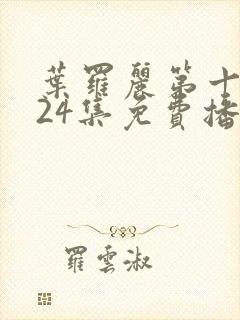 葉羅麗第十
24集免費播
羅雲淑